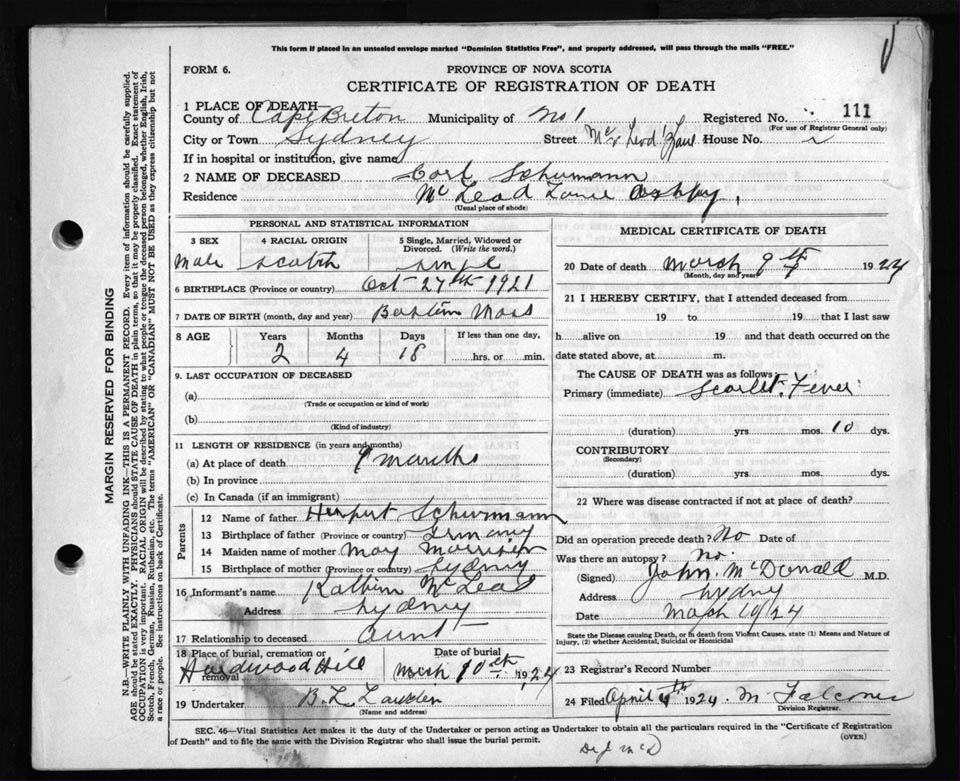 This form if placed in an unsealed envelope marked "Dominion Statistics Free", and properly addressed, will pass through the mails "FREE."
FORM 6.
PROVINCE OF NOVA SCOTIA
CERTIFICATE OF REGISTRATION OF DEATH
1 PLACE OF DEATH—
County of Cape Breton Municipality of No 1 Registered No. 111
(For use of Registrar General only)
City or Town Sydney Street McLeod Lane House No.
If in hospital or institution, give name
2 NAME OF DECEASED Carl Schumann
Residence McLead Lane Ashby,
(Usual place of abode)
PERSONAL AND STATISTICAL INFORMATION
3 SEX 4 RACIAL ORIGIN 5 Single, Married, Widowed or Divorced. (Write the word.)
Male Scotch
6 BIRTHPLACE (Province or country) Oct 27th 1921
7 DATE OF BIRTH (month, day and year) Mass
8 AGE Years Months Days If less than one day,
2 4 18 hrs. or min.
9. LAST OCCUPATION OF DECEASED
(a)
(Trade or occupation or kind of work)
(b)
(Kind of industry)
11 LENGTH OF RESIDENCE (in years and months)
(a) At place of death months
(b) In province
(c) In Canada (if an immigrant)
Parents
12 Name of father Schurmann
13 Birthplace of father (Province or country) Germany
14 Maiden name of mother May Morrison
15 Birthplace of mother (Province or country) Sydney
16 Informant's name McLead
Address Sydney
17 Relationship to deceased Aunt
18 Place of burial, cremation or removal Date of burial
Hardwood Hill March 10th 1924
19 Undertaker B L
(Name and address)
MEDICAL CERTIFICATE OF DEATH
20 Date of death March 9th 1924
(Month, day and year)
21 I HEREBY CERTIFY, that I attended deceased from
19 to 19 that I last saw
h alive on 19 and that death occurred on the
date stated above, at m.
The CAUSE OF DEATH was as follows:
Primary (immediate) Scarlet Fever
(duration) yrs mos. 10 dys.
CONTRIBUTORY
(Secondary)
(duration) yrs. mos. dys.
22 Where was disease contracted if not at place of death?
Did an operation precede death? No Date of
Was there an autopsy? No.
(Signed) John McDonald M.D.
Address Sydney
Date March 1924
State the Disease causing Death, or in death from Violent Causes, state (1) Means and Nature of
Injury, (2) whether Accidental, Suicidal or Homicidal
23 Registrar's Record Number
24 Filed April 1924 M Falconer
Division Registrar.
SEC. 46—Vital Statistics Act makes it the duty of the Undertaker or person acting as Undertaker to obtain all the particulars required in the "Certificate of Registration
of Death" and to file the same with the Division Registrar who shall issue the burial permit.
(OVER)
MARGIN RESERVED FOR BINDING
N.B.—WRITE PLAINLY WITH UNFADING INK—THIS IS A PERMANENT RECORD. Every item of information should be carefully supplied.
AGE should be stated EXACTLY. PHYSICIANS should STATE CAUSE OF DEATH in plain terms, so that it may be properly classified. Exact statement of
OCCUPATION is very important. RACIAL ORIGIN will be described by stating to what people or tongue the deceased person belonged, whether English, Irish,
Scotch, French, German, Russian, Ruthenian, etc. The terms "AMERICAN" or "CANADIAN" MUST NOT BE USED as they express citizenship but not
a race or people. See instructions on back of Certificate.